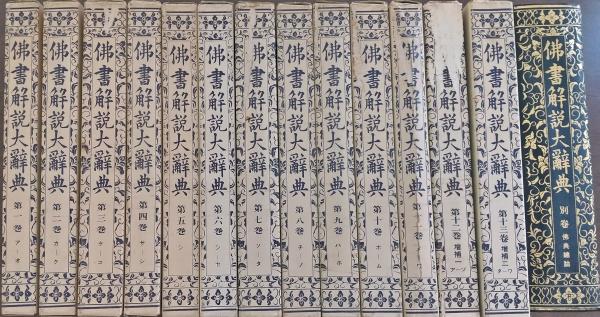 佛書解説大辭典 第一巻 ア-オ
佛書解説大辭典 第二巻 カ-ク
佛書解説大辭典 第三巻 ケ-コ
佛書解説大辭典 第四巻 サ-シ
佛書解説大辭典 第五巻 シ
佛書解説大辭典 第六巻 シ-セ
佛書解説大辭典 第七巻 ソ-タ
佛書解説大辭典 第八巻
佛書解説大辭典 第九巻 ハ-ホ
佛書解説大辭典 第十巻 ホ-ム
佛書解説大辭典 第十一巻
書解説大辭典 第十二巻 増補一 ア-ソ
佛書解説大辭典 第十三巻 増補二 タ-ワ
佛書解説大辭典 別巻 佛典總論